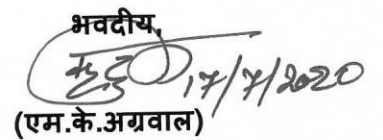 भवदीय,
17/7/2020
(एम.के.अग्रवाल)